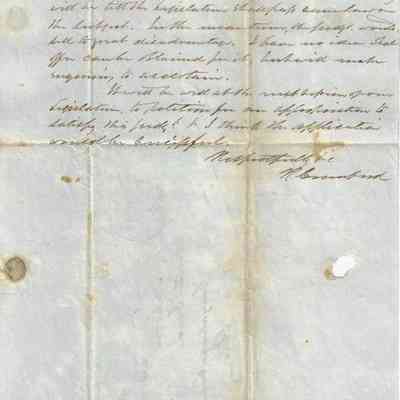 will be till the legislature shall pass some law on
the subject. In the mean time, the judgt would
sell to great disadvantage. I have no idea that
can be obtained for it, but will make
inquiries, to ascertain.
We will be wild at the next session of our
Legislature, to petition for an appropriation to
satisfy this judgt & I think the application
would be successful.
Respectfully &c
R